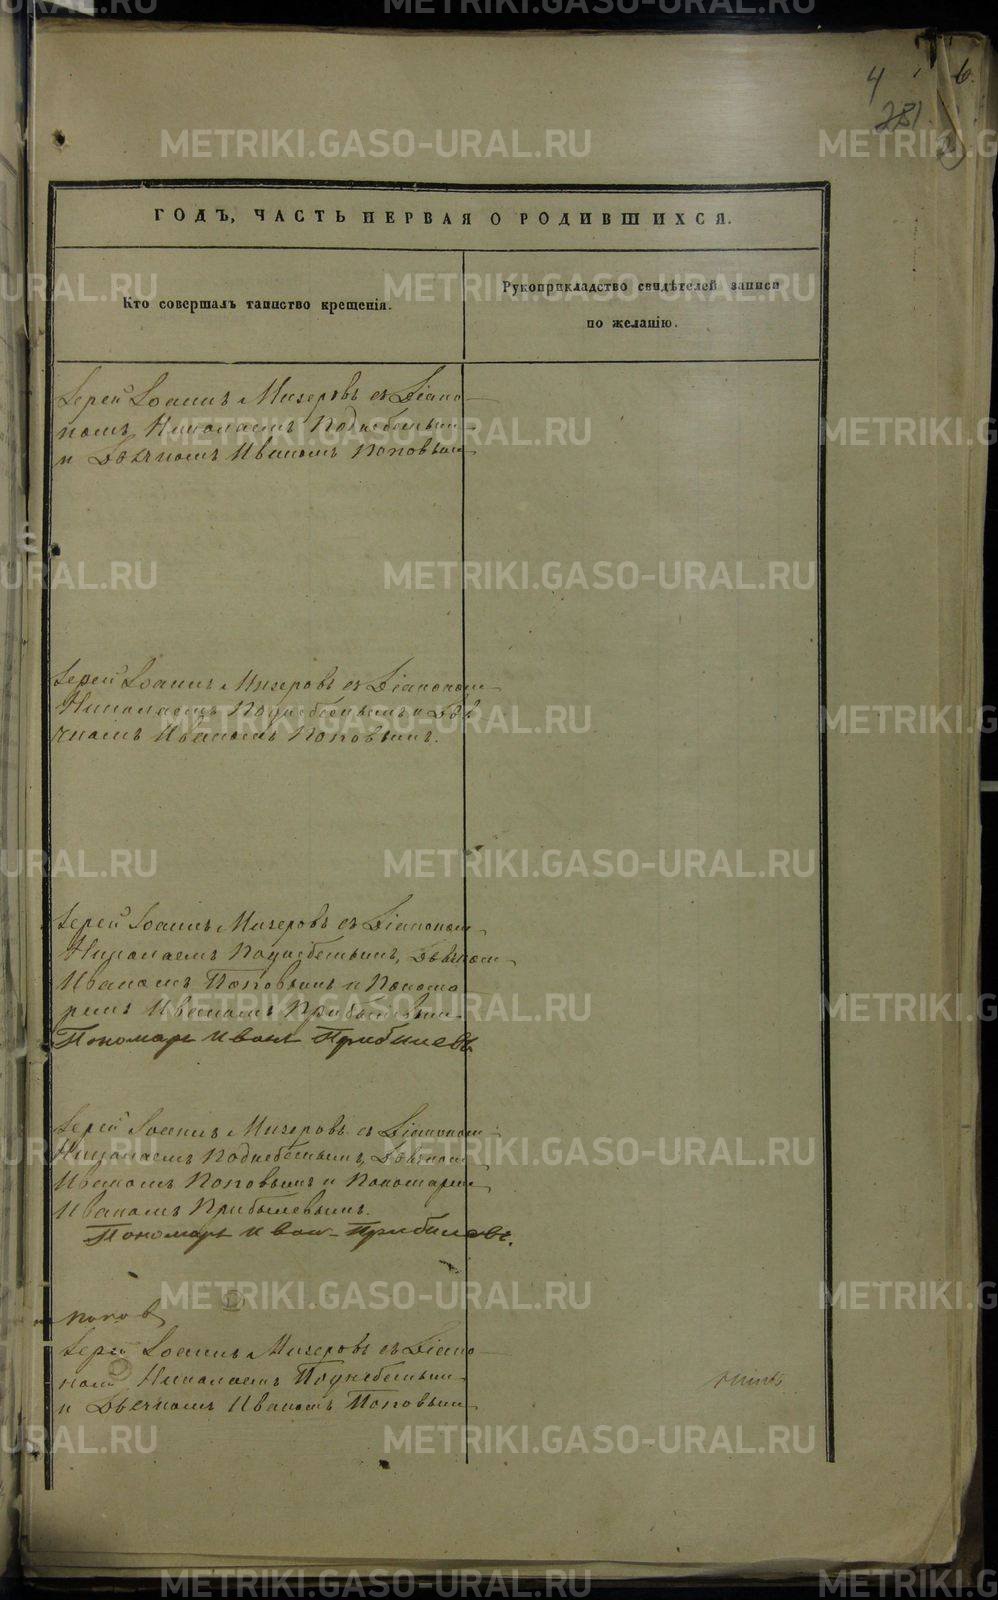 4 6.
281.
ГОДЪ, ЧАСТЬ ПЕРВАЯ О РОДИВШИХСЯ.
Кто совершалъ таинство крещенія.
Рукоприкладство свидѣтелей записи
по желанію.
Іерей Іоаннъ Мизеровъ съ Діако-
номъ Николаемъ Поднебеснымъ
и Дьячкомъ Иваномъ Поповымъ
Іерей Іоаннъ Мизеровъ съ Діакономъ
Николаемъ Поднебеснымъ и Дья
чкомъ Иваномъ Поповымъ.
Іерей Іоаннъ Мизеровъ съ Діакономъ
Николаемъ Поднебеснымъ, Дьячкомъ
Иваномъ Поповымъ и Понома
ремъ Иваномъ Прибылевымъ
Пономарь Иванъ Прибылевъ
Іерей Іоаннъ Мизеровъ съ Діакономъ
Николаемъ Поднебеснымъ, Дьячкомъ
Иваномъ Поповымъ и Пономаремъ
Иваномъ Прибылевымъ.
Пономарь Иван Прибылевъ.
Попов
Іерей Іоаннъ Мизеровъ съ Діако-
номъ Николаемъ Поднебеснымъ
и Дьячкомъ Иваномъ Поповымъ
METRIKI.GASO-URAL.RU